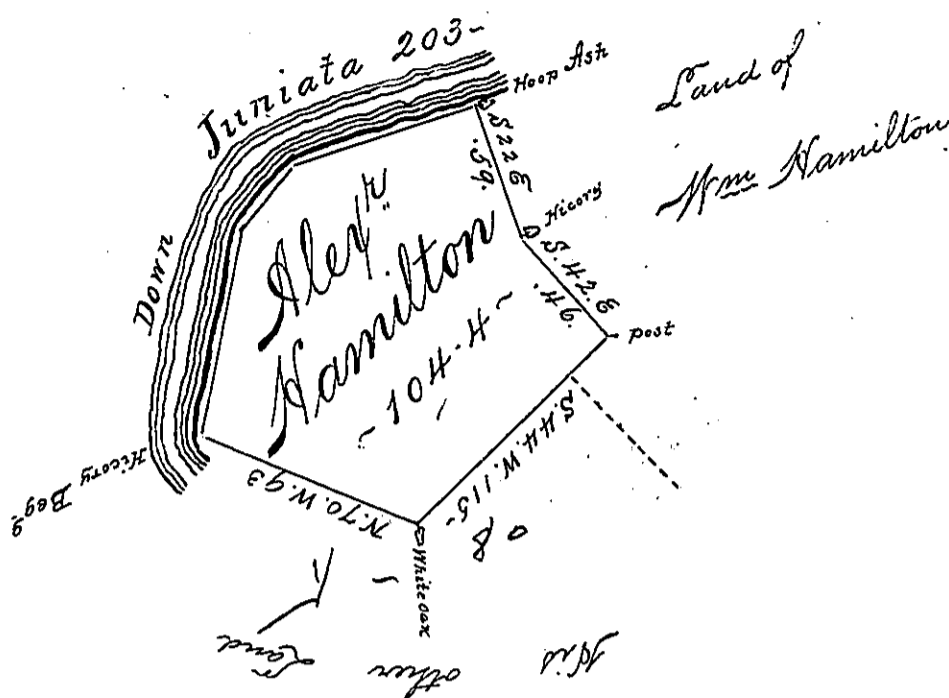 Down Juniata 203-
Hoop Ash
Land of
Wm Hamilton
S 22 E
.59.
Hicory
S.42.E
.46.
post
Alexr
Hamilton
-104.4-
S.44.W.115-
N.70.W.93
Hicory Beg.
Whiteoak
His other Land